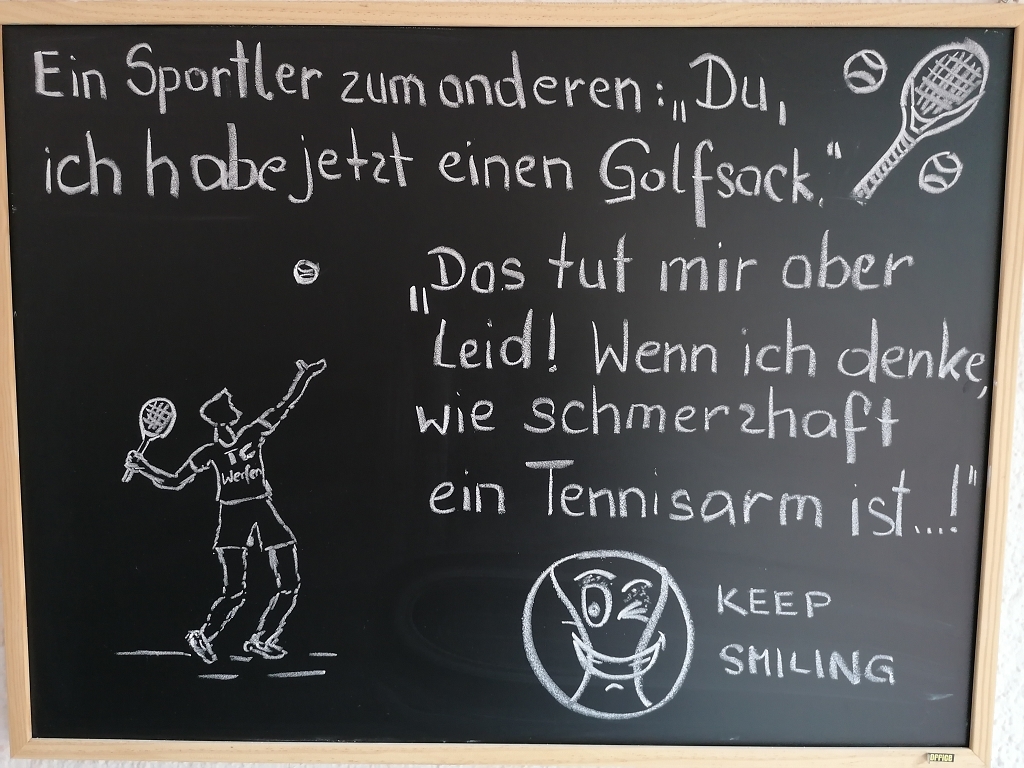 Ein Sportler zum anderen: „Du,
ich habe jetzt einen Golfsack."
„Das tut mir aber
Leid! Wenn ich denke,
wie schmerzhaft
ein Tennisarm ist...!"
TC
Werfen
KEEP
SMILING
OFFICE